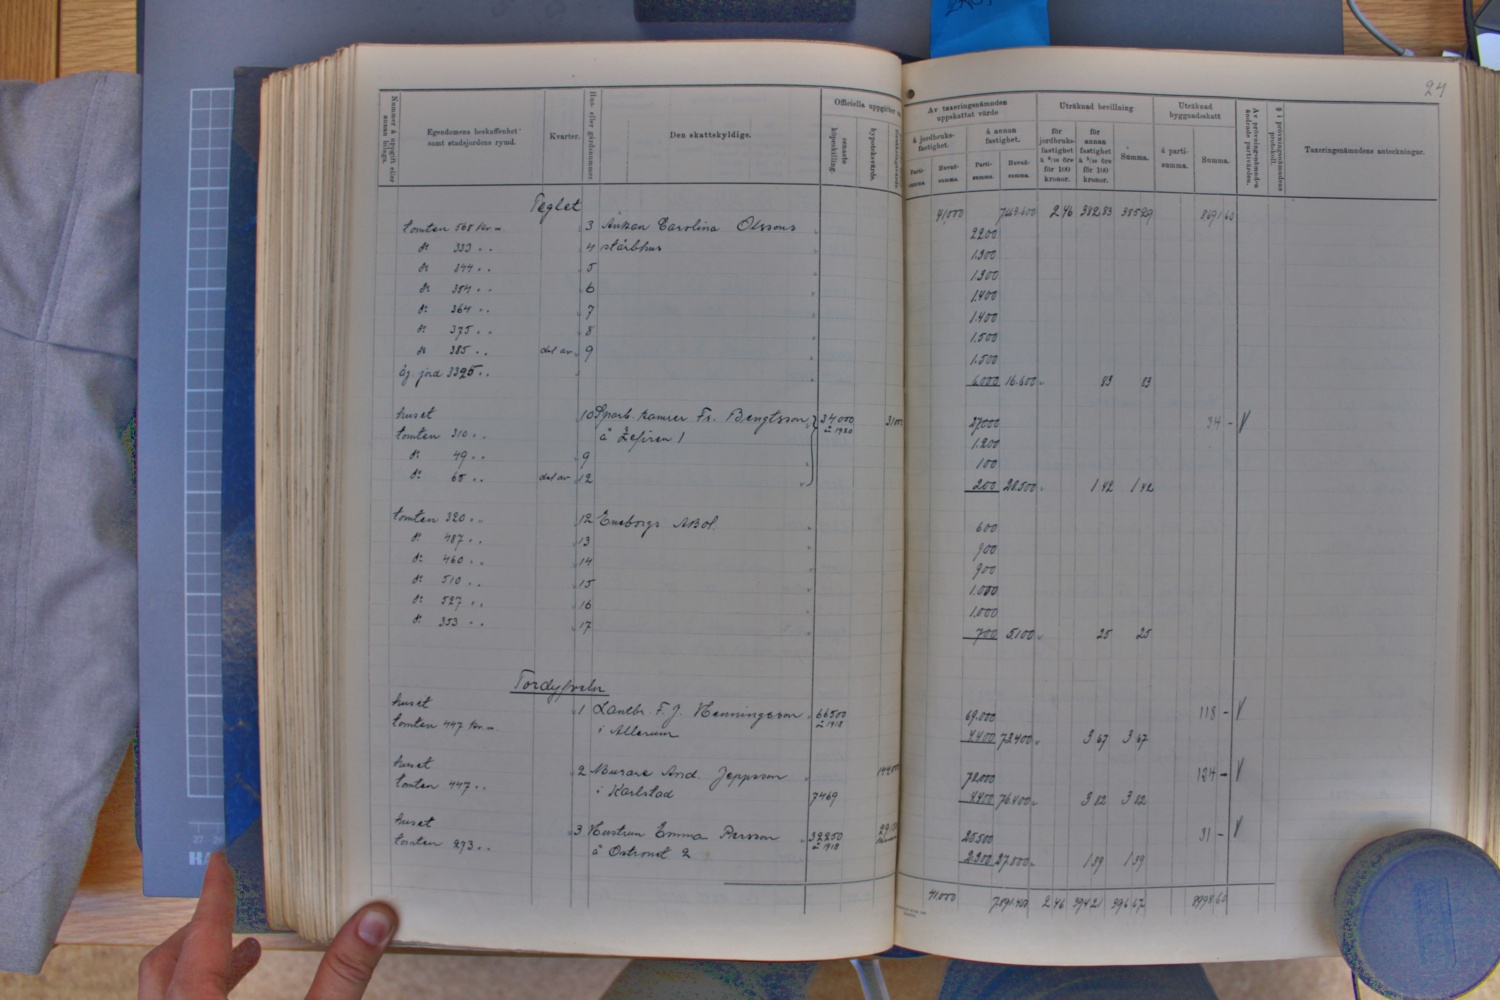 24
Nummer å uppgift eller annan bilaga.
Egendomens beskaffenhet samt stadsjordens rymd.
Kvarter.
Hus- eller gårdsnummer
Den skattskyldige.
Officiella uppgifter
senaste köpeskilling.
hypoteksvärde.
Av taxeringsnämnden uppskattat värde
å jordbruksfastighet.
å annan fastighet.
Partisumma.
Huvudsumma.
Partisumma.
Huvudsumma.
Uträknad bevillning
för jordbruksfastighet
för 100 kronor.
för annan fastighet
för 100 kronor.
Summa.
Uträknad byggnadsskatt
å partisumma.
Summa.
Av prövningsnämnden ändrade partivärden.
§ i prövningsnämndens protokoll.
Taxeringsnämndens anteckningar.
Teglet
41,000 2 46 382,83 385 29
tomten 568 kv.m 3 Änkan Carolina Olssons 2200
d:o 333 4 stärbhus 1.300
d:o 344 5 1.300
d:o 354 6 1.400
d:o 364 7 1.400
d:o 375 8 1.500
d:o 385 del av 9 1.500
äg. jord 3325 6000 16.600 83 83
huset 10 Sparb. kamrer Fr. Bengtsson 34000 1920 27000 34 -
tomten 310 å Zefiren 1 1.200
d:o 49 9 100
d:o 65 del av 12 200 28.500 1 42 1 42
tomten 320 12 Eneborgs ABol. 600
d:o 487 13 900
d:o 460 14 900
d:o 510 15 1.000
d:o 527 16 1.000
d:o 353 17 700 5100 25 25
Tordyfveln
huset 1 Lantbr. F. J. Henningsson 66500 1918 69.000 118 -
tomten 447 kv.m i Allerum 4400 73.400 3 67 3 67
huset 2 Murare And. Jeppsson 72.000 124 -
tomten 447 i Karlstad 7469 4400 76.400 3 82 3 82
huset 3 Hustrun Emma Persson 32250 1918 25.500 31 -
tomten 293 å Ostronet 2 2300 27.800 1 39 1 39
41.000 2 46 394 21 396 67